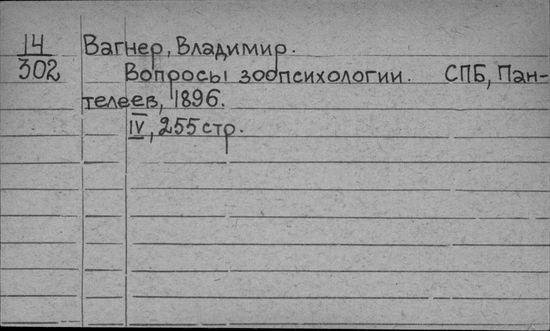 14 Вагнер, Владимир.
302 Вопросы зоопсихологии. СПБ, Пан-
телеев, 1896.
IV, 255 стр.